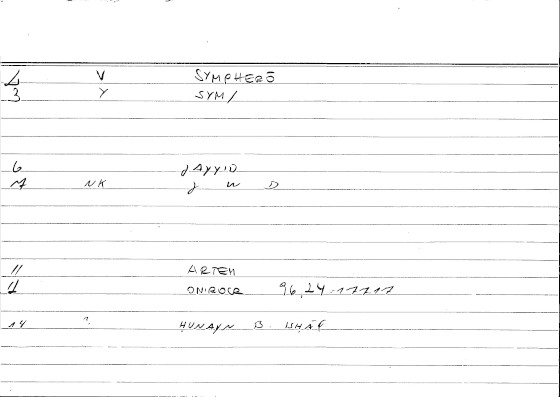 2 V SYMPHERŌ
3 Y SYM/
6 ǦAYYID
7 NK Ǧ W D
11 ARTEM
12 ONIROCR 96,24 - 
14 ? HUNAYN B. ISHĀQ